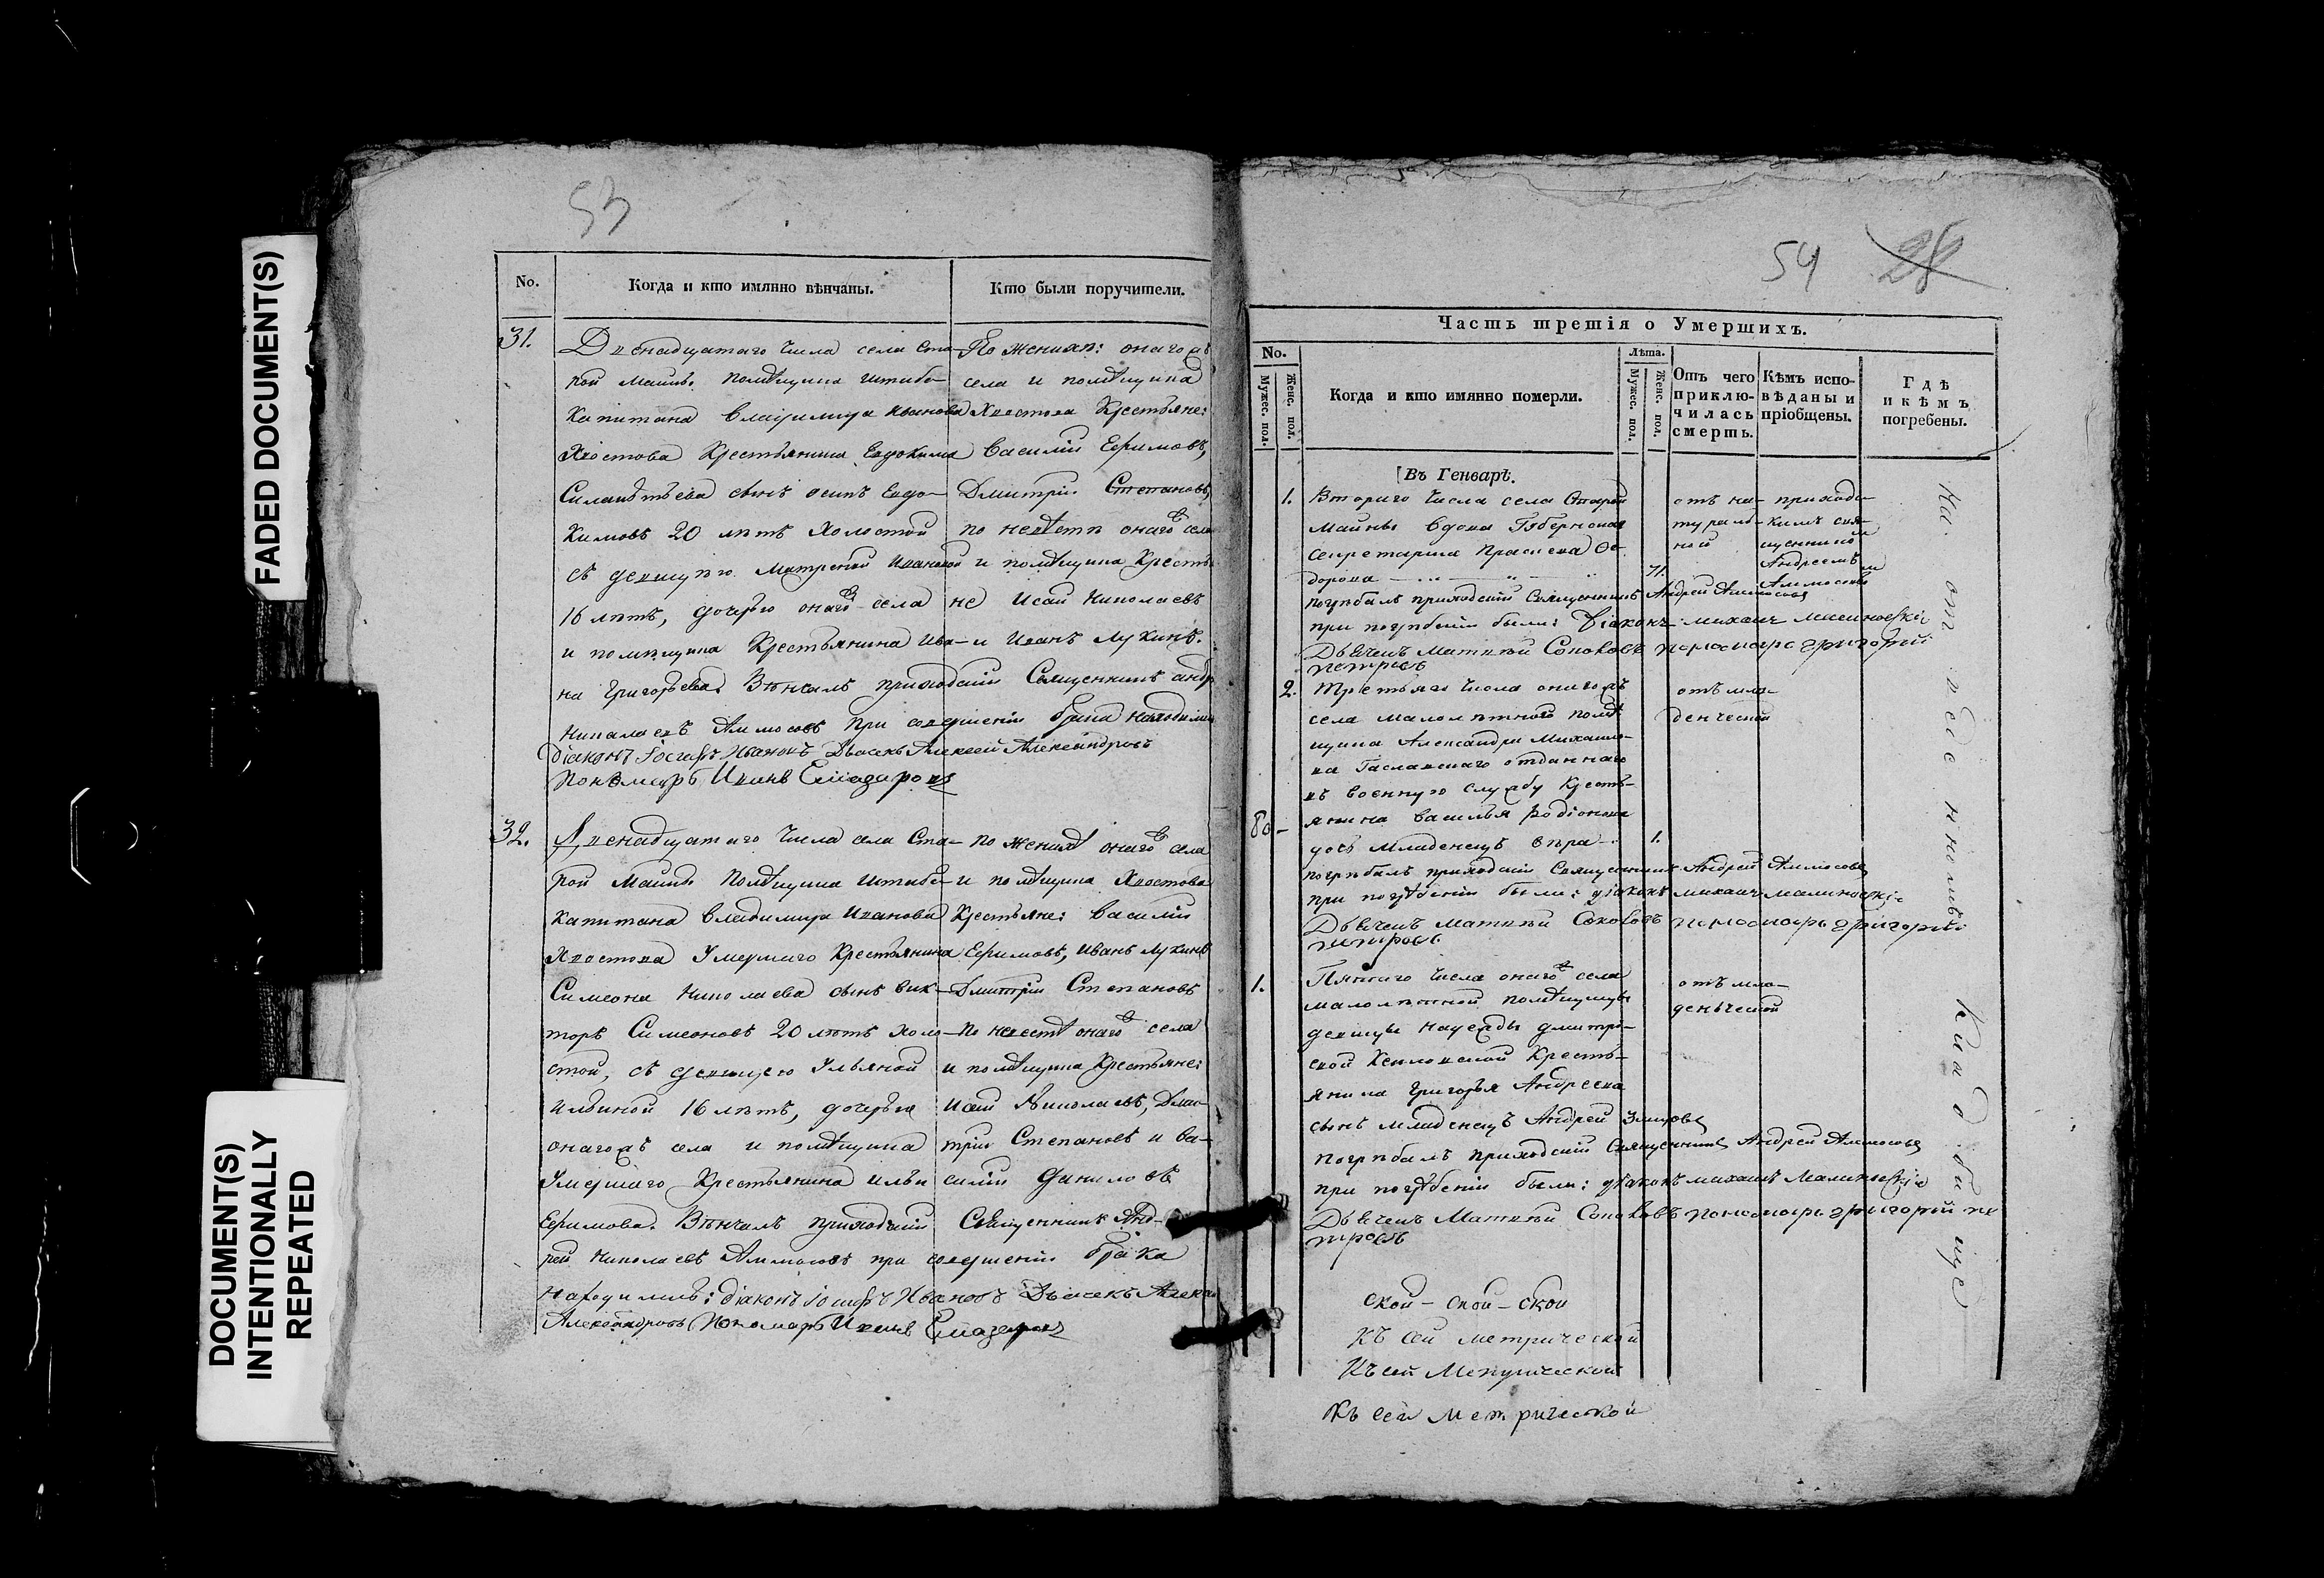 FADED DOCUMENT(S)
DOCUMENT(S)
INTENTIONALLY
REPEATED
53
No.
Когда и кто имянно вѣнчаны.
Кто были поручители.
31.
Двенадцатаго числа села Ста-
рой Майны помѣщика штабс-
капитана Владимира Иванова
Хвостова крестьянина Евдокима
Силантьева сынъ Осипъ Евдо-
кимовъ 20 лѣтъ холостой
съ девицею Матреной Ивановой
16 лѣтъ, дочерью онаго села
и помѣщика Крестьянина Ива-
на Григорьева. Вѣнчалъ приходскій Священникъ Андр
Николаевъ Аммосовъ при совершеніи брака находились
діаконъ Іосифъ Ивановъ Дьячекъ Алексей Александровъ
Пономарь Иванъ
По женихе: онагожъ
села и помѣщика
Хвостова Крестьяне:
Василій Ефимовъ,
Дмитрій Степановъ,
по невѣсте онаго села
и помѣщика Крестья
не Исай Николаевъ
и Иванъ Лукинъ.
32.
Двенадцатаго числа села Ста-
рой Майны помѣщика штабс-
капитана Владимира Иванова
Хвостова умершаго Крестьянина
Симеона Николаева сынъ Вик-
торъ Симеоновъ 20 лѣтъ холо-
стой, съ девицею Ульяной
Ильиной 16 лѣтъ, дочерью
онагожъ села и помѣщика
умершаго Крестьянина Ильи
Ефимова. Вѣнчалъ приходскій Священникъ Анд-
рей Николаевъ Аммосовъ при совершеніи брака
находились: діаконъ Іосифъ Ивановъ Дьячекъ Алексей
Александровъ Пономарь Иванъ
по женихѣ онаго села
и помѣщика Хвостова
Крестьяне: Василій
Ефимовъ, Иванъ Лукинъ
Дмитрій Степановъ
по невестѣ онаго села
и помѣщика Крестьяне:
Исай Николаевъ, Дми-
трій Степановъ и Ва-
силій Даниловъ
54
28
Часть третія о Умершихъ.
No.
Мужес. пол.
Женс. пол.
Когда и кто имянно померли.
Лѣта.
Мужес. пол.
Женс. пол.
Отъ чего
приклю-
чилась
смерть.
Кѣмъ испо-
вѣданы и
пріобщены.
Гдѣ
и кѣмъ
погребены.
Въ Генварѣ.
1.
Втораго числа села Старой
Майны вдова Губернская
секретарша Прасковья Фе-
дорова
71.
отъ на-
тураль-
ной
приходс-
кимъ свя-
щенником
Андреемъ
Аммосовы
погребалъ приходскій Священникъ Андрей Аммосовъ
при погребеніи были: Діаконъ Михаилъ
Дьячекъ Матвѣй Соколовъ пономарь Григорій
Петровъ
2.
Третьяго числа онагожъ
села малолѣтнаго помѣ
щика Александра Михайло-
ва отданнаго
въ военную службу Кресть-
янина Василья Родіонова
дочь младенецъ
1.
отъ мла-
денческой
80-
погребалъ приходскій Священникъ Андрей Аммосовъ
при погребеніи были: діаконъ Михаилъ Малиновскій
Дьячекъ Матвѣй Соколовъ пономарь Григорій
Петровъ
1.
Пятаго числа онаго села
малолѣтной помѣщицы
девицы Надежды Дмитре-
вой Кресть-
янина Григорья Андреева
сынъ младенецъ Андрей
отъ мла-
денческой
погребалъ приходскій Священникъ Андрей Аммосовъ
при погребеніи были: діаконъ Михаилъ Малиновскій
Дьячекъ Матвѣй Соколовъ пономарь Григорій пе
тровъ
На кладбище
ской - ской - ской
къ сей метрической
Къ сей Метрической
Къ сей Метрической